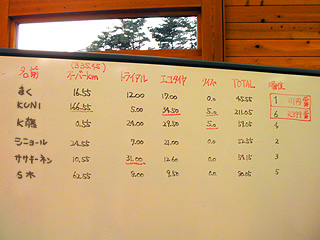 (335.45)
名前 スーパーkm トライアル エコタイヤ クイズ TOTAL 順位
まく 16.55 12.00 17.00 0.0 45.55 1
KUNI 166.55 5.00 34.50 5.0 211.05 6
K藤 0.55 24.00 29.50 5.0 59.05 4
シニョール 24.55 7.00 21.00 0.0 52.55 2
ササキーネン 10.55 31.00 12.60 0.0 3
S木 62.55 8.00 9.50 0.0 80.05 5